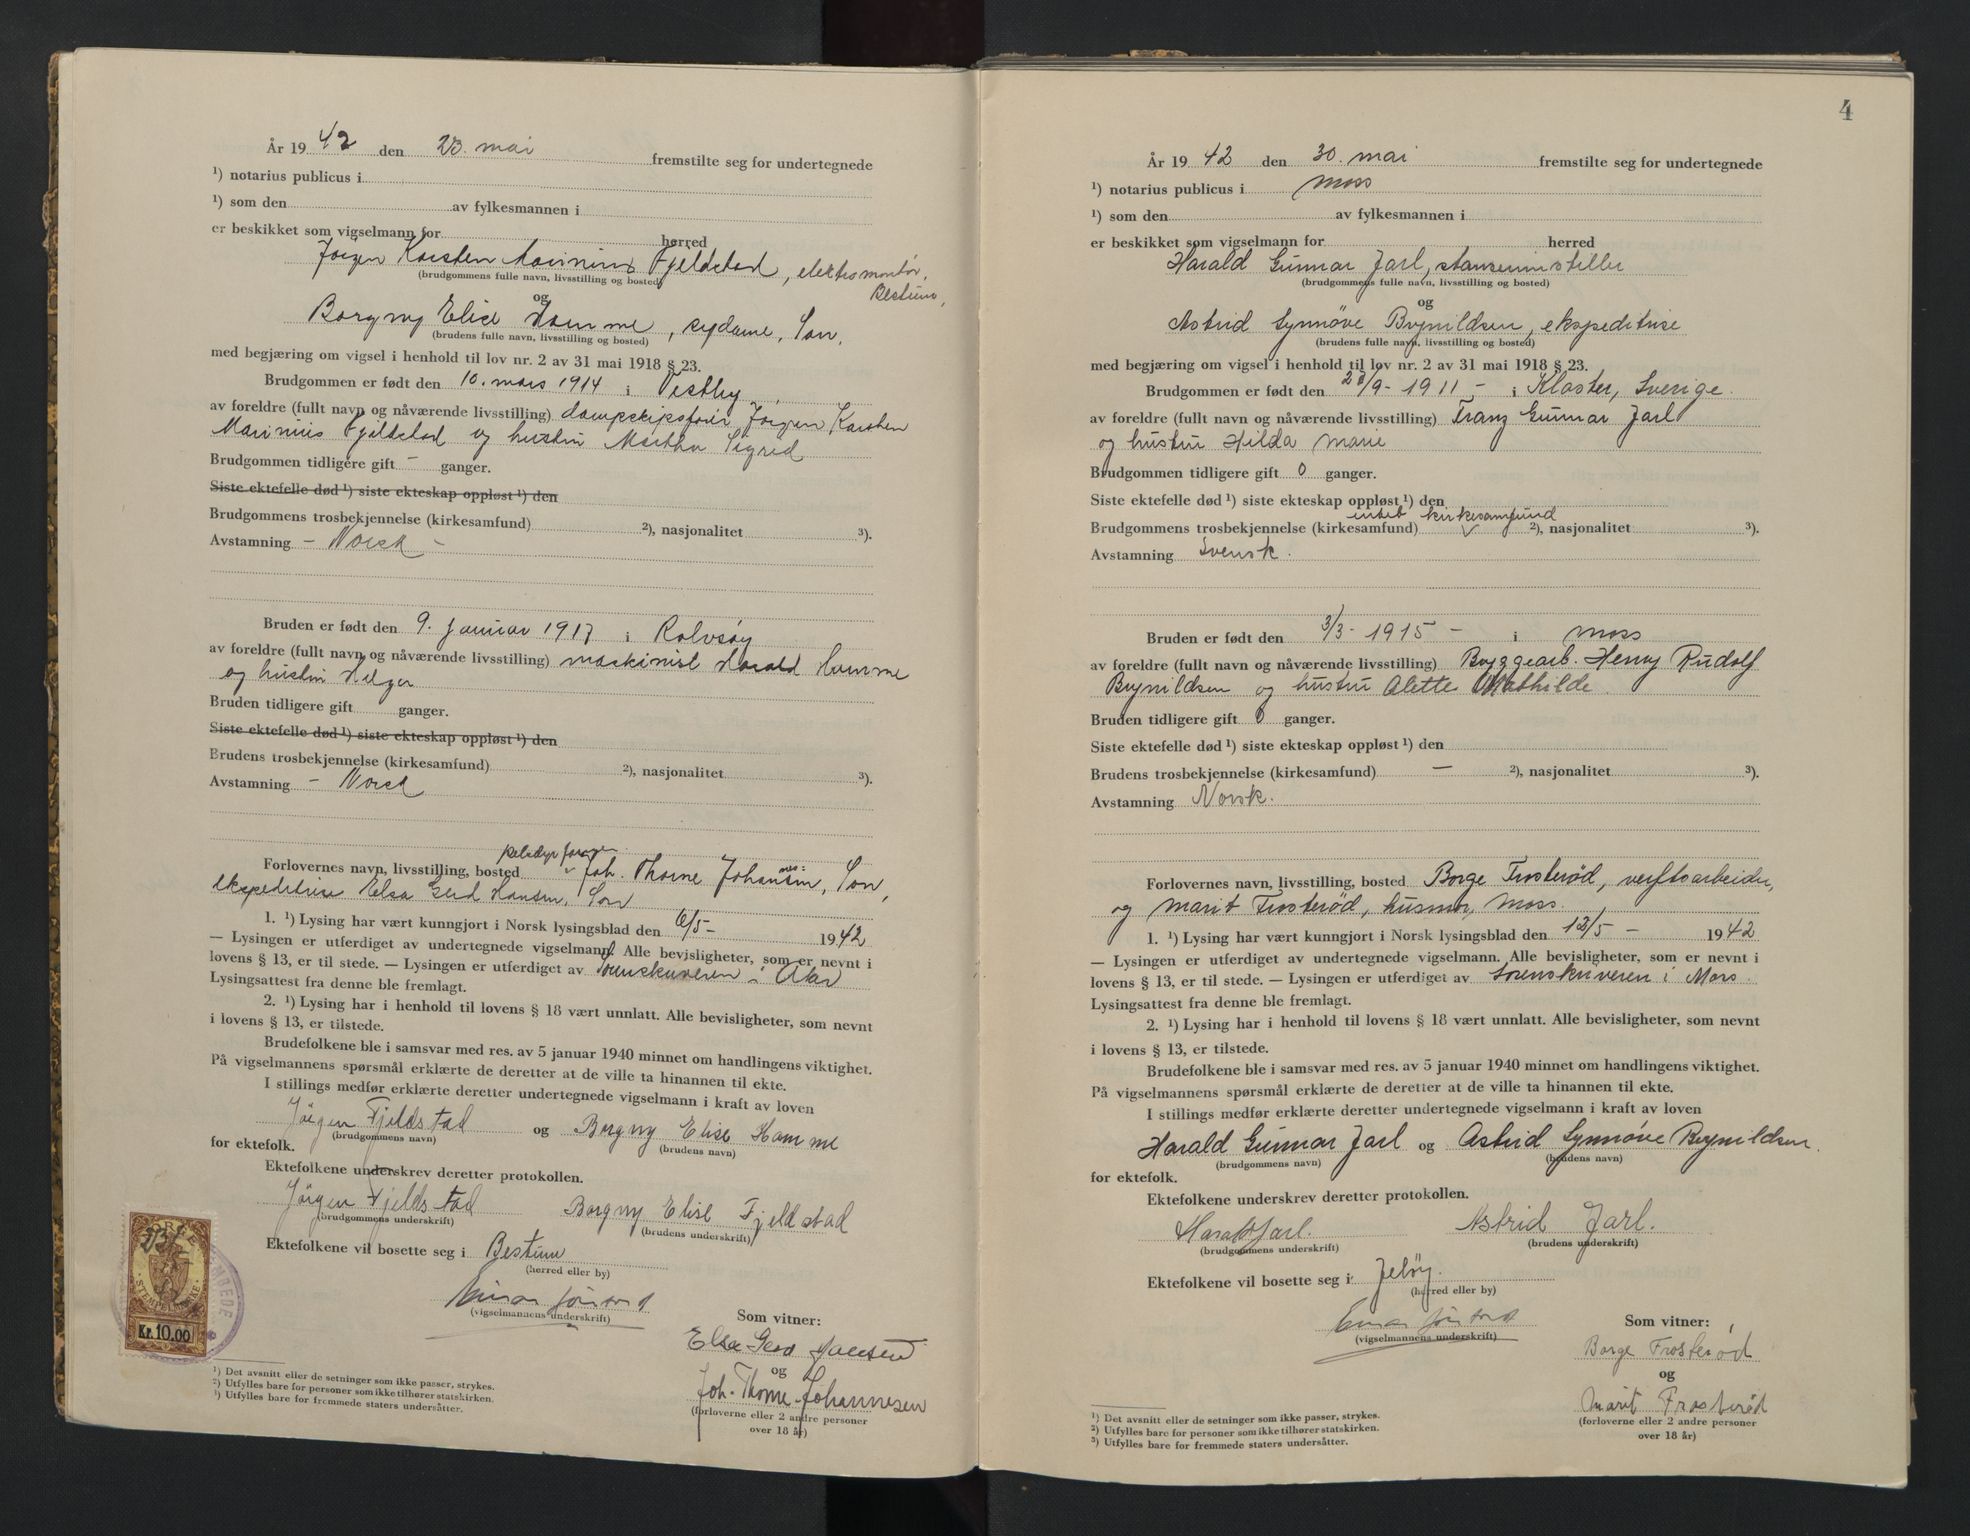 År 19 42 den 23. mai fremstilte seg for undertegnede
¹) notarius publicus i
¹) som den av fylkesmannen i
er beskikket som vigselmann for herred
Jørgen Karsten Marinius Fjeldstad, elektromontör, Bestum,
(brudgommens fulle navn, livsstilling og bosted)
og
Borgny Elise Hamme, sydame, Son,
(brudens fulle navn, livsstilling og bosted)
med begjæring om vigsel i henhold til lov nr. 2 av 31 mai 1918 § 23.
Brudgommen er født den 10. mars 1914 i Vestby,
av foreldre (fullt navn og nåværende livsstilling) dampskipsfører Jørgen Karsten
Marinius Fjeldstad og hustru Martha Sigrid
Brudgommen tidligere gift - ganger.
Siste ektefelle død ¹) siste ekteskap oppløst ¹) den
Brudgommens trosbekjennelse (kirkesamfund) ²), nasjonalitet ³).
Avstamning - Norsk -
Bruden er født den 9. januar 1917 i Rolvsøy
av foreldre (fullt navn og nåværende livsstilling) maskinist Harald Hamme
og hustru Helga
Bruden tidligere gift ganger.
Siste ektefelle død ¹) siste ekteskap oppløst ¹) den
Brudens trosbekjennelse (kirkesamfund) ²), nasjonalitet ³).
Avstamning - Norsk
pelsdyrfarmer
Forlovernes navn, livsstilling, bosted Joh. Thorne Johannesen, Son,
ekspeditrise Elsa Gerd Hansen, Son
1. ¹) Lysing har vært kunngjort i Norsk lysingsblad den 6/5- 1942
— Lysingen er utferdiget av undertegnede vigselmann. Alle bevisligheter, som er nevnt i
lovens § 13, er til stede. — Lysingen er utferdiget av Sorenskriveren i Aker
Lysingsattest fra denne ble fremlagt.
2. ¹) Lysing har i henhold til lovens § 18 vært unnlatt. Alle bevisligheter, som nevnt
i lovens § 13, er tilstede.
Brudefolkene ble i samsvar med res. av 5 januar 1940 minnet om handlingens viktighet.
På vigselmannens spørsmål erklærte de deretter at de ville ta hinannen til ekte.
I stillings medfør erklærte deretter undertegnede vigselmann i kraft av loven
Jörgen Fjeldstad og Borgny Elise Hamme
(brudgommens navn) (brudens navn)
for ektefolk.
Ektefolkene underskrev deretter protokollen.
Jörgen Fjeldstad Borgny Elise Fjeldstad
(brudgommens underskrift) (brudens underskrift)
Ektefolkene vil bosette seg i Bestum
(herred eller by)
(vigselmannens underskrift)
Som vitner:
Elsa Gerd Hansen
og
Joh. Thorne Johannesen
(forloverne eller 2 andre personer
over 18 år)
NORGE
STEMPELMERKE
Kr. 10.00
¹) Det avsnitt eller de setninger som ikke passer, strykes.
²) Utfylles bare for personer som ikke tilhører statskirken.
³) Utfylles bare for fremmede staters undersåtter.
4
År 19 42 den 30. mai fremstilte seg for undertegnede
¹) notarius publicus i Moss
¹) som den av fylkesmannen i
er beskikket som vigselmann for herred
Harald Gunnar Jarl, stanseinnstiller
(brudgommens fulle navn, livsstilling og bosted)
og
Astrid Synnöve Brynildsen, ekspeditrise
(brudens fulle navn, livsstilling og bosted)
med begjæring om vigsel i henhold til lov nr. 2 av 31 mai 1918 § 23.
Brudgommen er født den 28/9- 1911 - i Kloster, Sverige.
av foreldre (fullt navn og nåværende livsstilling) Franz Gunnar Jarl
og hustru Hilda Marie
Brudgommen tidligere gift 0 ganger.
Siste ektefelle død ¹) siste ekteskap oppløst ¹) den
intet kirkesamfund
Brudgommens trosbekjennelse (kirkesamfund) ²), nasjonalitet ³).
Avstamning Svensk.
Bruden er født den 3/3- 1915 - i Moss
av foreldre (fullt navn og nåværende livsstilling) Byggearb. Henry Rudolf
Brynildsen og hustru Alette Mathilde.
Bruden tidligere gift 0 ganger.
Siste ektefelle død ¹) siste ekteskap oppløst ¹) den
Brudens trosbekjennelse (kirkesamfund) — ²), nasjonalitet ³).
Avstamning Norsk.
Forlovernes navn, livsstilling, bosted Borge Frosterød, verftsarbeider,
og Marit Frosterød, husmor, Moss.
1. ¹) Lysing har vært kunngjort i Norsk lysingsblad den 13/5 - 1942
— Lysingen er utferdiget av undertegnede vigselmann. Alle bevisligheter, som er nevnt i
lovens § 13, er til stede. — Lysingen er utferdiget av Sorenskriveren i Moss.
Lysingsattest fra denne ble fremlagt.
2. ¹) Lysing har i henhold til lovens § 18 vært unnlatt. Alle bevisligheter, som nevnt
i lovens § 13, er tilstede.
Brudefolkene ble i samsvar med res. av 5 januar 1940 minnet om handlingens viktighet.
På vigselmannens spørsmål erklærte de deretter at de ville ta hinannen til ekte.
I stillings medfør erklærte deretter undertegnede vigselmann i kraft av loven
Harald Gunnar Jarl og Astrid Synnöve Brynildsen.
(brudgommens navn) (brudens navn)
for ektefolk.
Ektefolkene underskrev deretter protokollen.
Harald Jarl. Astrid Jarl.
(brudgommens underskrift) (brudens underskrift)
Ektefolkene vil bosette seg i Jelöy.
(herred eller by)
(vigselmannens underskrift)
Som vitner:
Borge Frosterød
og
Marit Frosterød
(forloverne eller 2 andre personer
over 18 år)
¹) Det avsnitt eller de setninger som ikke passer, strykes.
²) Utfylles bare for personer som ikke tilhører statskirken.
³) Utfylles bare for fremmede staters undersåtter.